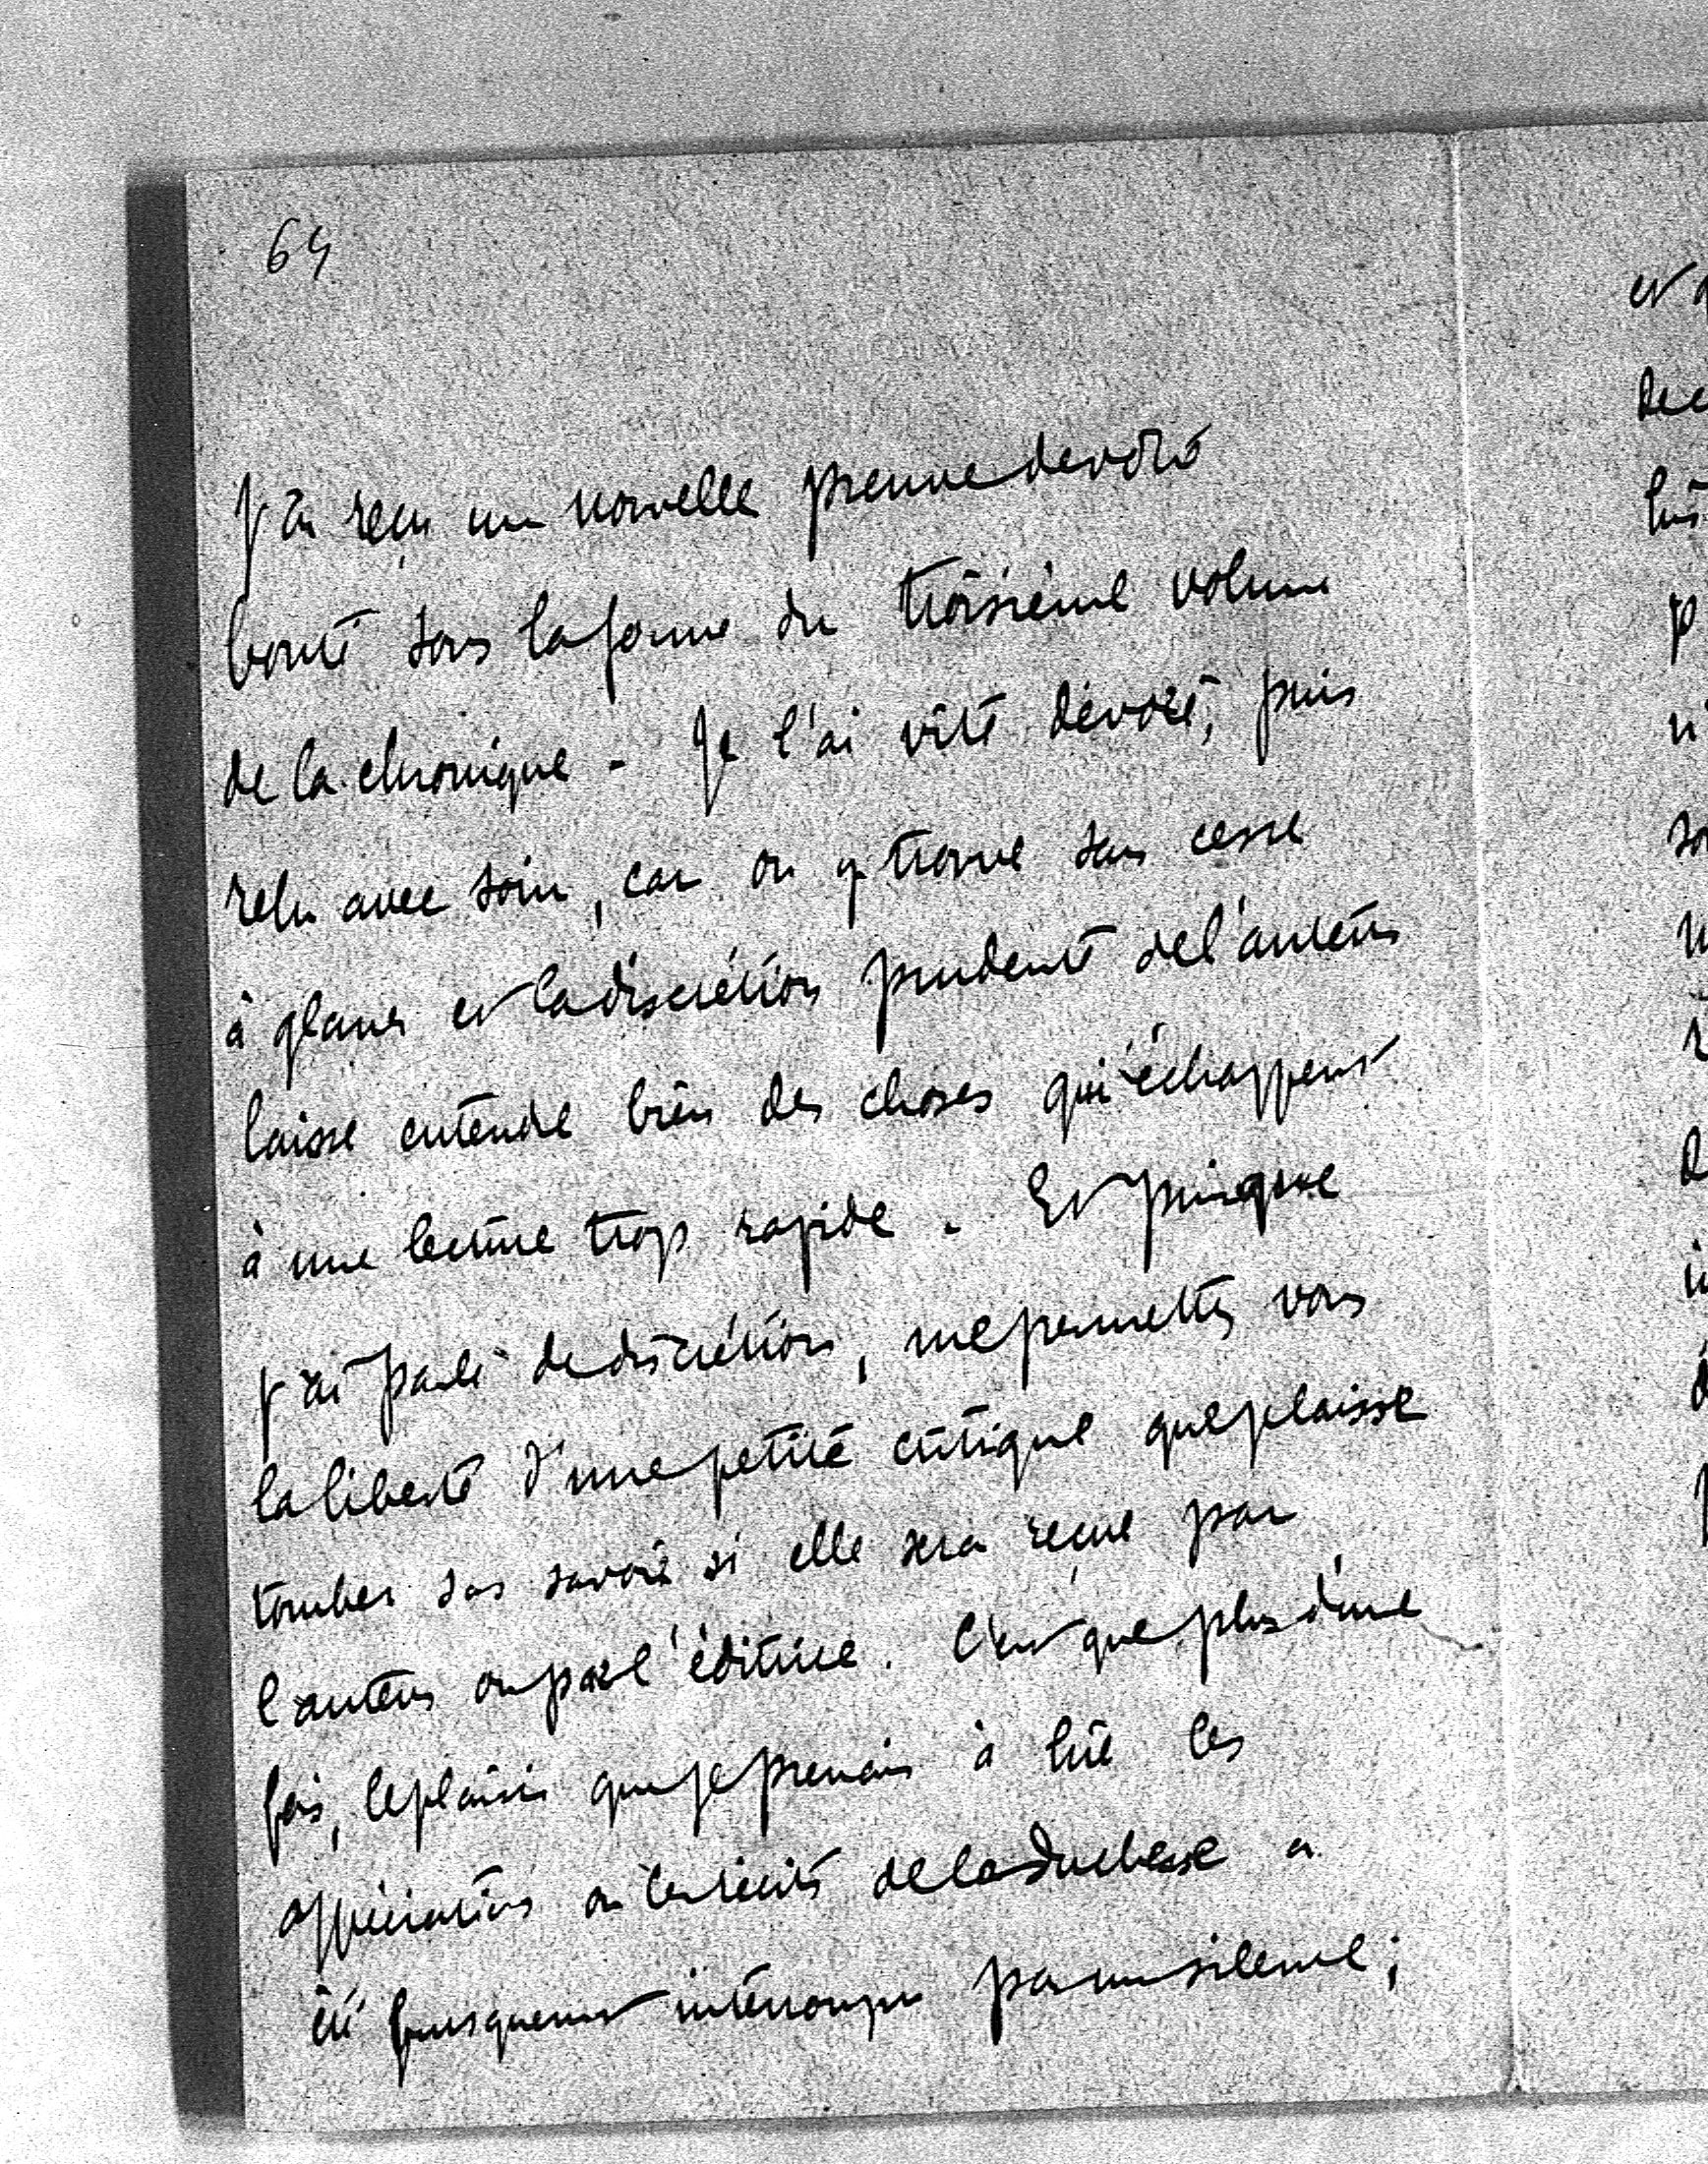 64
J'ai reçu une nouvelle preuve de votre
bonté sous la forme du troisième volume
de la chronique - Je l'ai vite dévoré, puis
relu avec soin, car on y trouve sans cesse
à glaner et la discrétion prudente de l'auteur
laisse entendre bien des choses qui échappent
à une lecture trop rapide. Et puisque
j'ai parlé de discrétion, me permettez vous
la liberté d'une petite critique que je laisse
tomber sans savoir si elle sera reçue par
l'auteur ou par l'éditrice. C'est que plus d'une
fois, le plaisir que je prenais à lire les
appréciations ou les récits de la Duchesse a
été brusquement interrompu par un silence;
et
de